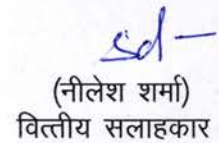 sd-
(नीलेश शर्मा)
वित्तीय सलाहकार